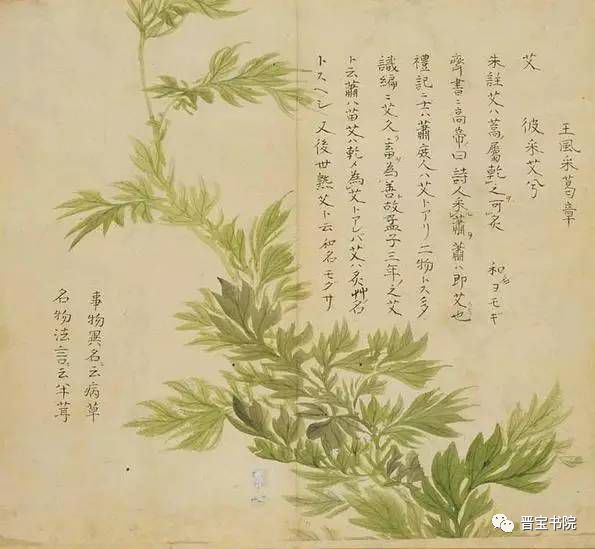 王風采葛章
艾 彼采艾兮
朱註艾ハ蒿屬乾之可灸 和名ヨモギ
齊書ニ高帝曰詩人采蕭蕭ハ即艾也
禮記ニ士ハ蕭庶人ハ艾トアリ二物トス
識編ニ艾久畜為善故孟子三年之艾
ト云蕭ハ苗艾ハ乾〆為艾トアレバ艾ハ灸艸名
トスヘシ又後世熟艾ト云和名モグサ
事物異名云病草
名物法言云
晋宝书院